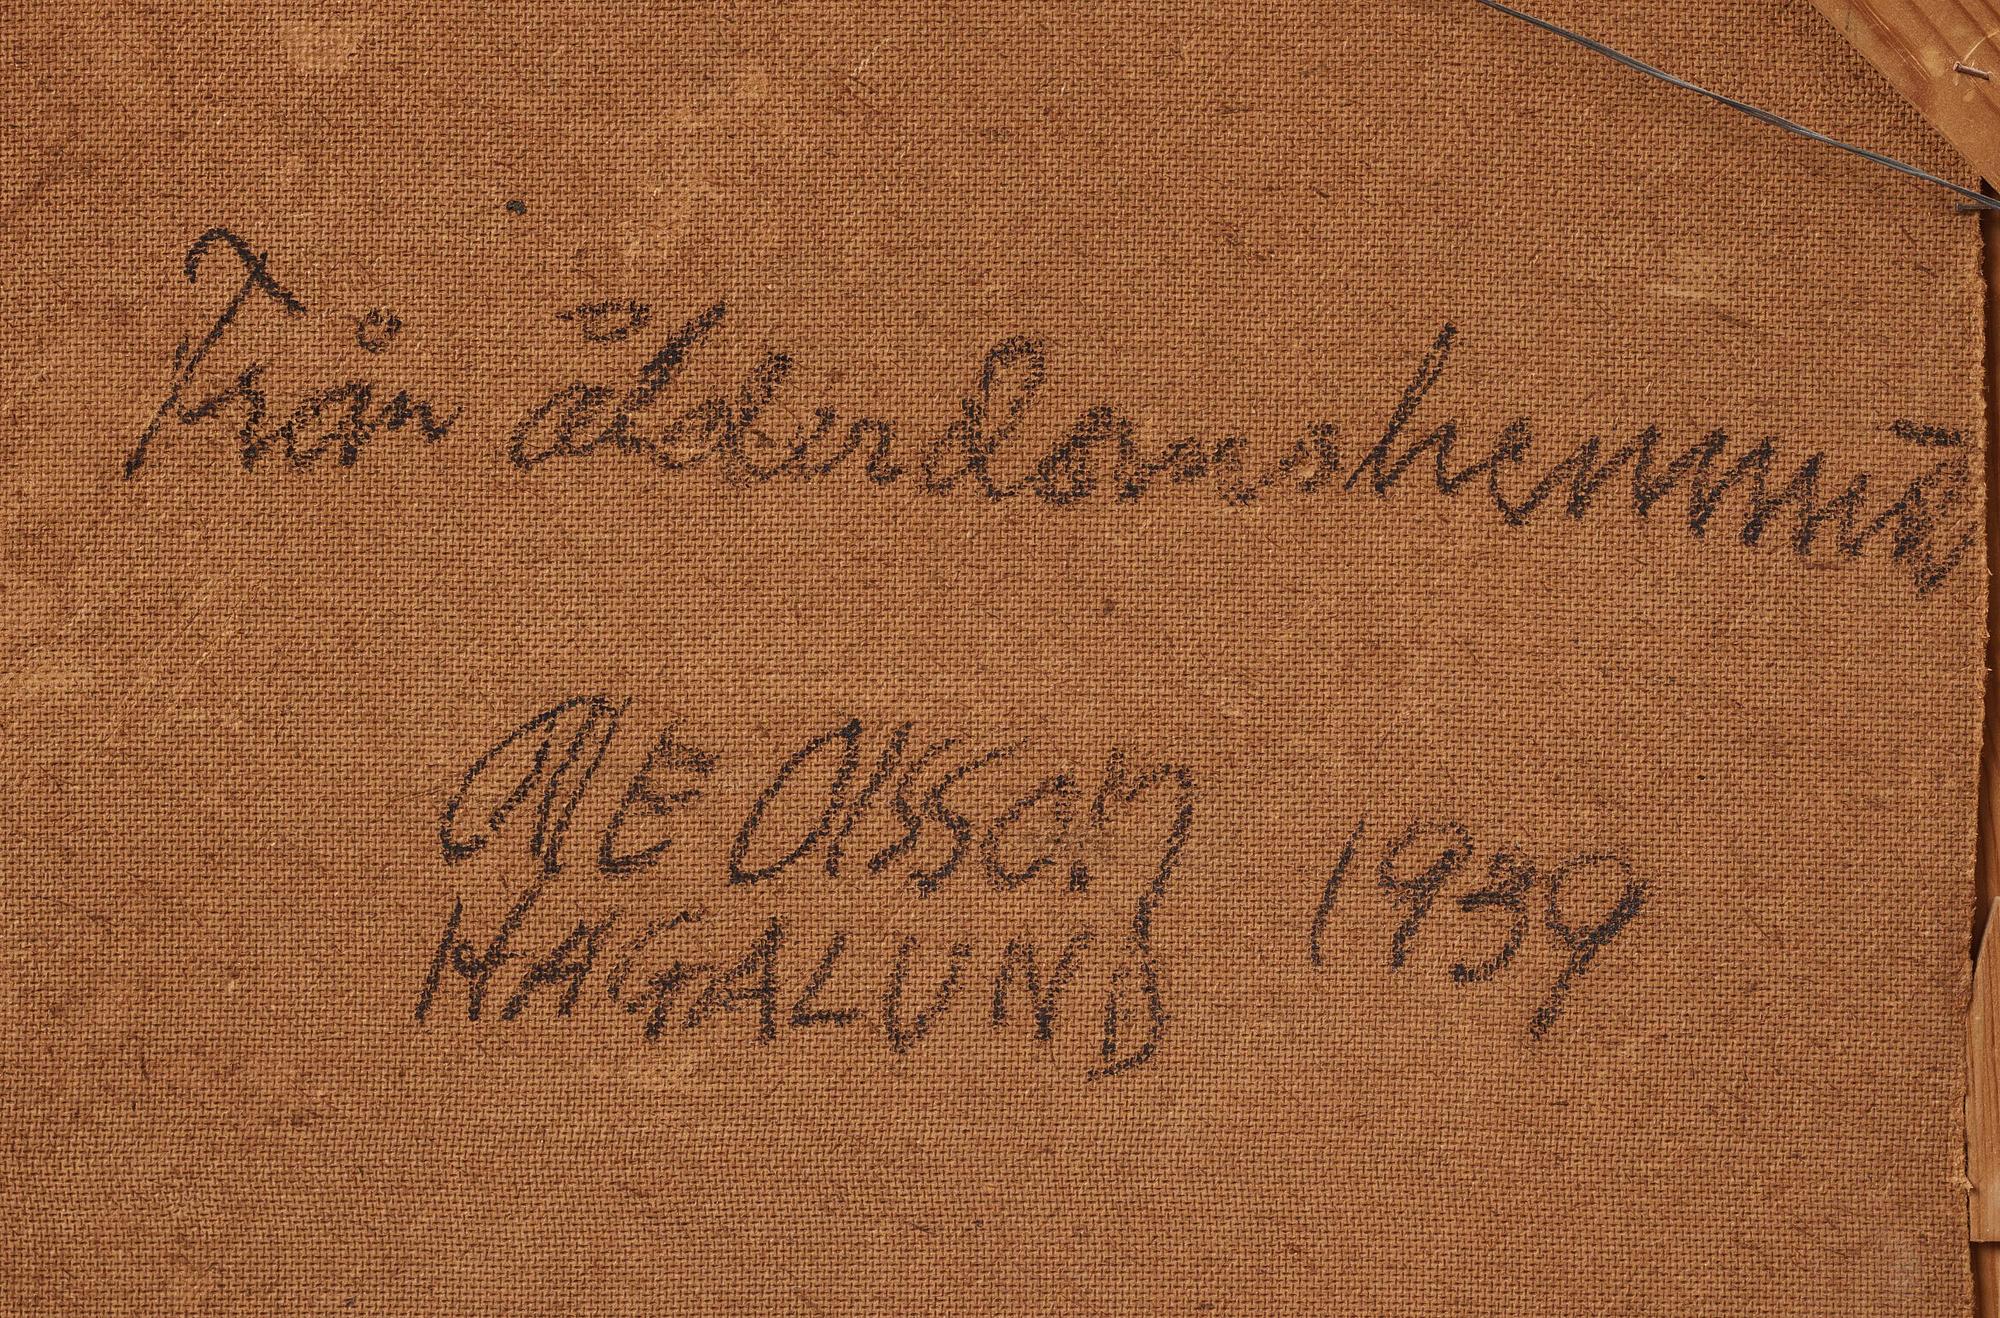 Från ålderdomshemmet
OLLE OLSSON 1939
HAGALUND